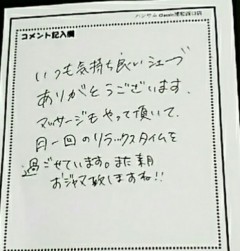 コメント記入欄
いつも気持ち良いシェーブ
ありがとうございます。
マッサージもやって頂いて、
月一回のリラックスタイムを
過ごせています。また来月
おジャマ致しますね!!